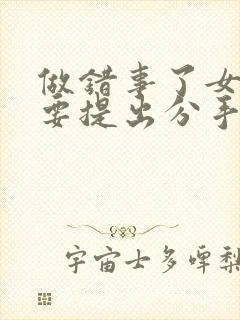 做错事了女
要提出分手
宇宙士多啤梨